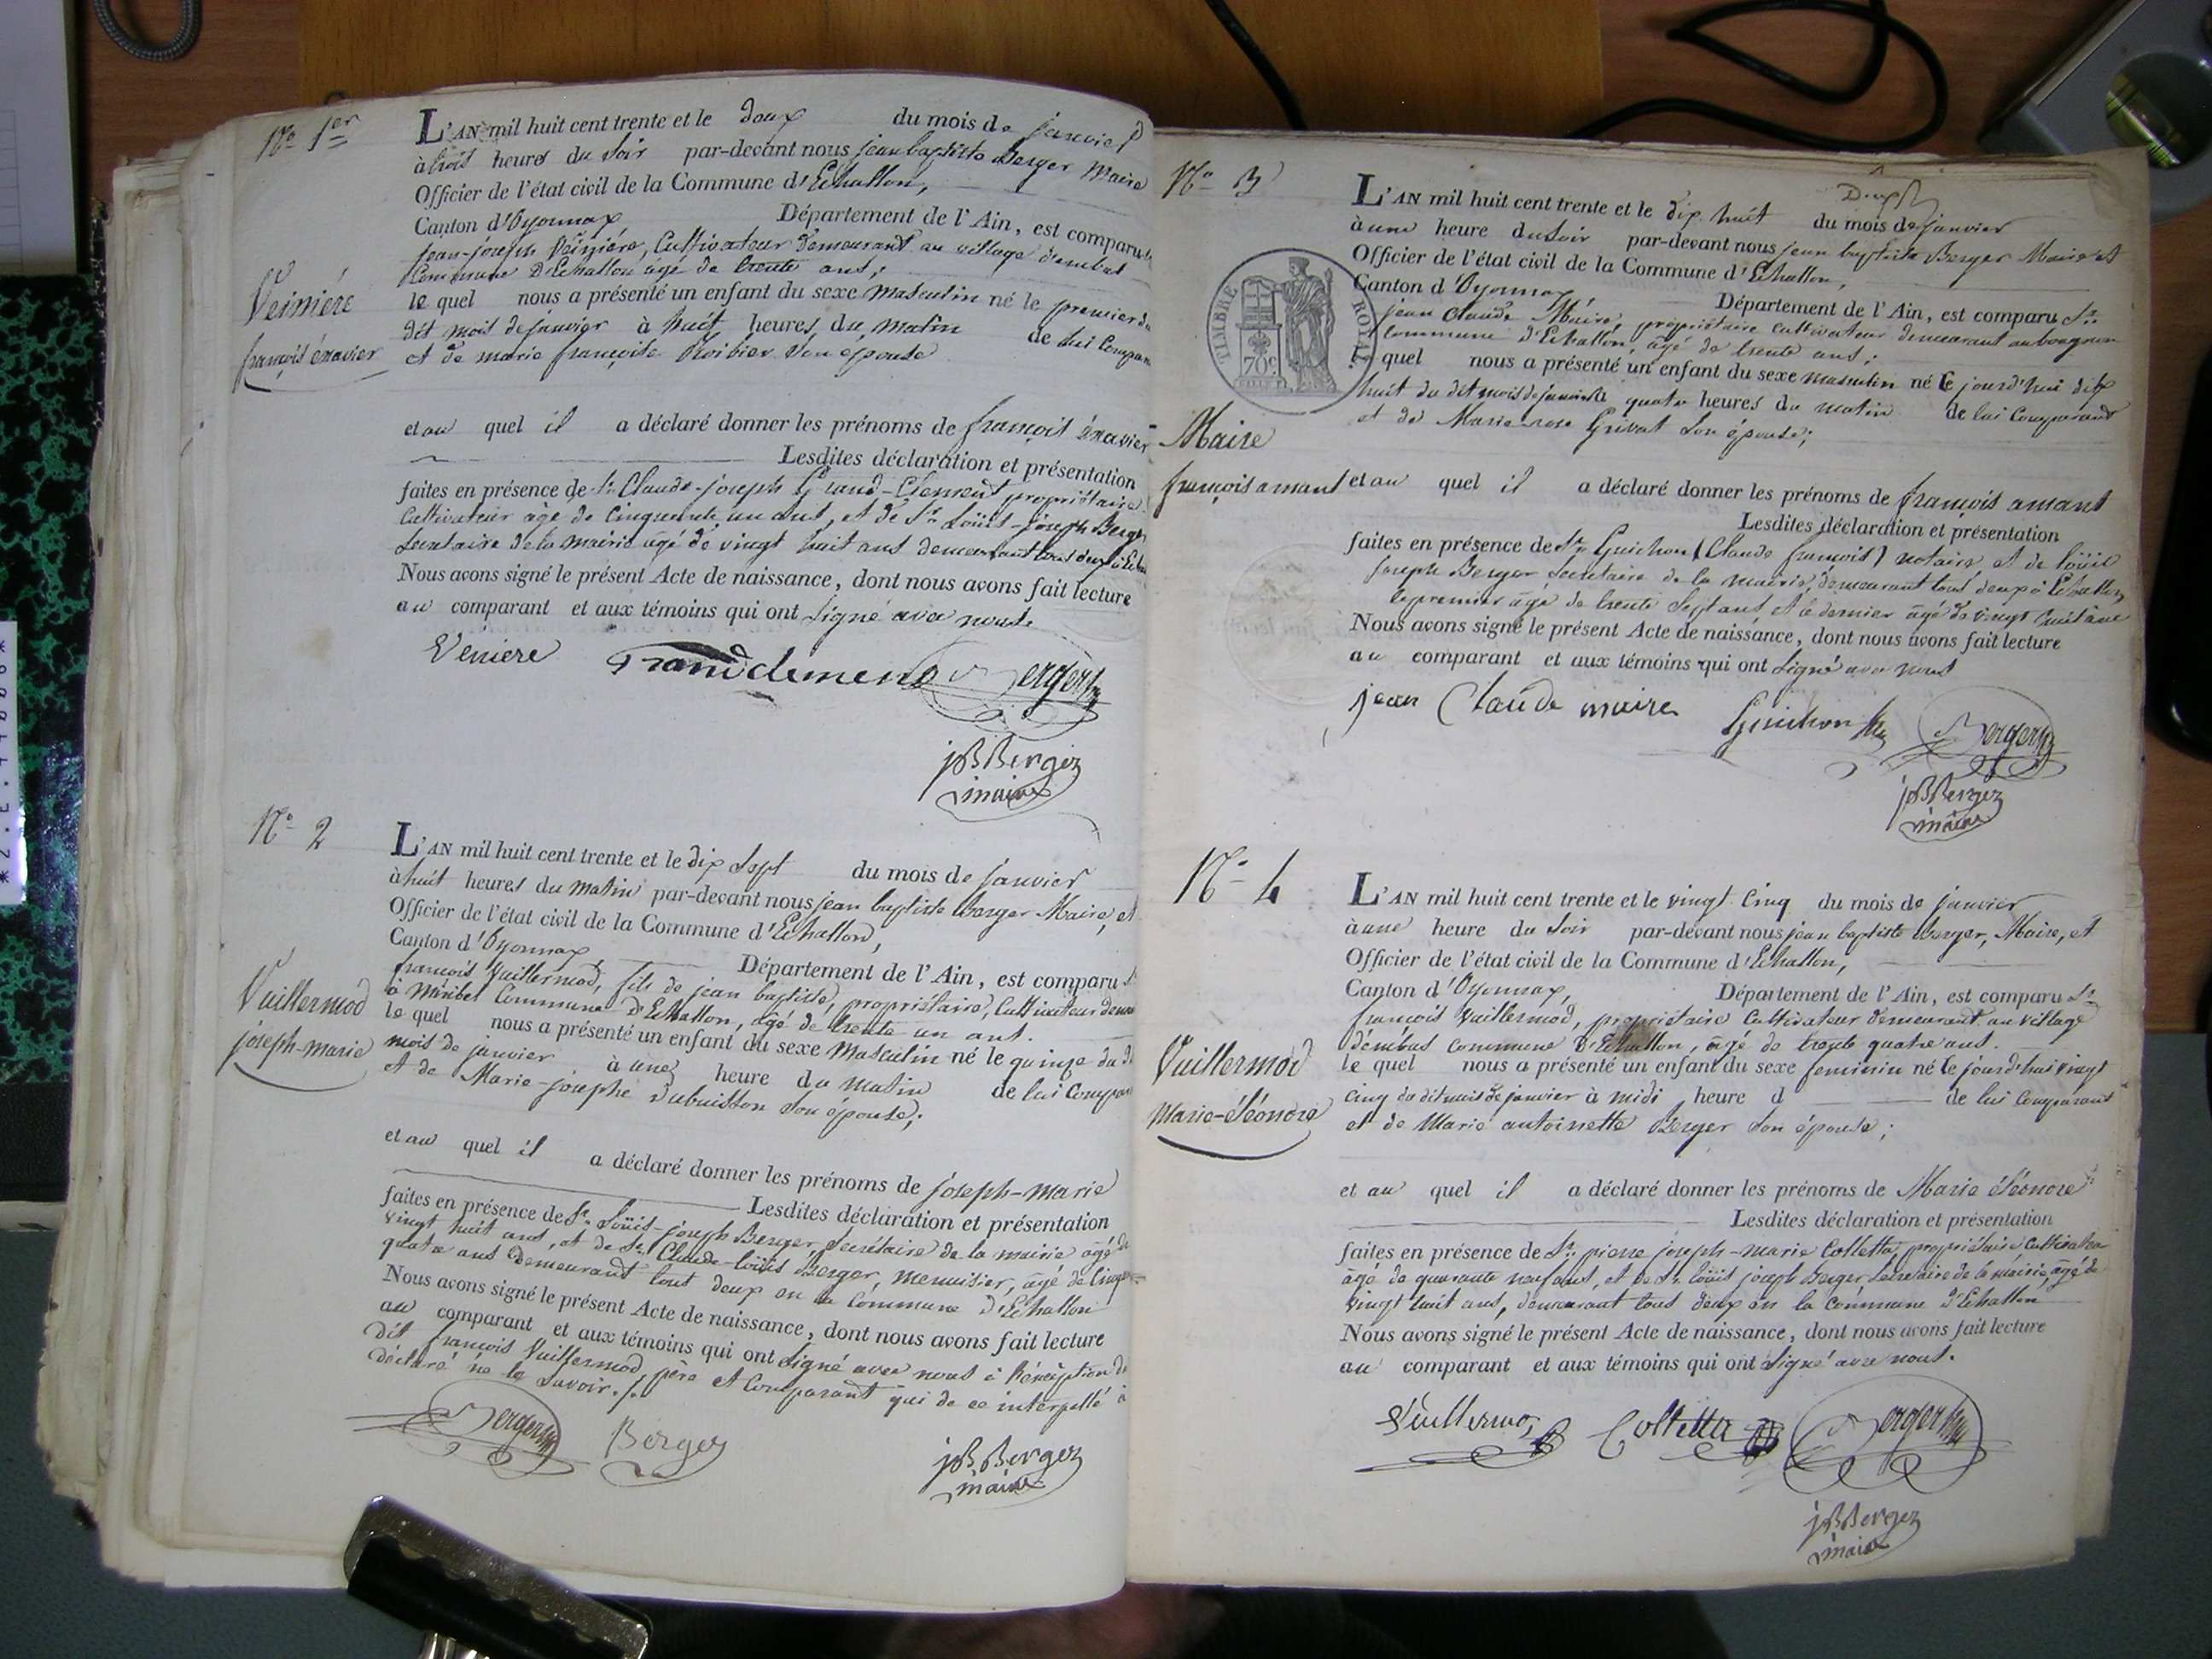 No 1er
L'AN mil huit cent trente et le deux du mois de janvier
à trois heures du soir par-devant nous jean baptiste Berger Maire
Officier de l'état civil de la Commune d'Echallon,
Canton d'Oyonnax Département de l'Ain, est comparu
jean-joseph Veinière, Cultivateur demeurant au village d'embut
Commune D'Echallon âgé de trente ans;
Veinière
le quel nous a présenté un enfant du sexe masculin né le premier du
dit mois de janvier à huit heures du matin de lui Compar
françois énavier
et de marie françoise son épouse
et au quel il a déclaré donner les prénoms de françois énavier
Lesdites déclaration et présentation
faites en présence de Sr Claude-joseph Grand-Clement propriétaire
Cultivateur âgé de Cinquante un ans, et de Sr Loüis-joseph Berger
Secrétaire de la mairie agé de vingt huit ans demeurant tous deux à Echa
Nous avons signé le présent Acte de naissance, dont nous avons fait lecture
au comparant et aux témoins qui ont signé avec nous
Vèniere Grandclement Berger
jB Berger
maire
No 2
L'AN mil huit cent trente et le dix sept du mois de janvier
à huit heures du matin par-devant nous jean baptiste Berger Maire, et
Officier de l'état civil de la Commune d'Echallon,
Canton d'Oyonnax, Département de l'Ain, est comparu S
françois Vuillermod, fils de jean baptiste, propriétaire, Cultivateur demeu
Vuillermod
à Miribel Commune D'Echallon, âgé de trente un ans.
le quel nous a présenté un enfant du sexe Masculin né le quinze du d
joseph-marie
mois de janvier à une heure du matin de lui Compar
et de Marie-josephe Dubuisson son épouse;
et au quel il a déclaré donner les prénoms de joseph-marie
Lesdites déclaration et présentation
faites en présence de Sr Loüis-joseph Berger Secrétaire de la mairie âgé de
vingt huit ans, et de Sr Claude-loüis Berger, menuisier, âgé de
quatre ans demeurant tout deux en la Commune d'Echallon
Nous avons signé le présent Acte de naissance, dont nous avons fait lecture
au comparant et aux témoins qui ont signé avec nous à l'éxception du
dit françois Vuillermod, père et Comparant qui de ce interpellé à
déclaré ne le savoir./.
Berger Berger
jB Berger
maire
No 3
L'AN mil huit cent trente et le dix huit du mois de janvier
à une heure du soir par-devant nous jean baptiste Berger Maire et
Officier de l'état civil de la Commune d'Echallon,
Canton d'Oyonnax Département de l'Ain, est comparu Sr
jean Claude Maire, propriétaire cultivateur demeurant au bougnon
commune d'Echallon, âgé de trente ans;
TIMBRE ROYAL.
70c
le quel nous a présenté un enfant du sexe masculin né le jourd'hui dix
huit du dit mois de janvier à quatre heures du matin de lui Comparant
et de Marie rose Grivat son épouse;
Maire
françois amant
et au quel il a déclaré donner les prénoms de françois amant
Lesdites déclaration et présentation
faites en présence de Sr Guichon (Claude françois) notaire, et de loüis
joseph Berger Secrétaire de la mairie, demeurant tous deux à Echallon
le premier âgé de trente Sept ans, et le dernier âgé de vingt huit ans
Nous avons signé le présent Acte de naissance, dont nous avons fait lecture
au comparant et aux témoins qui ont signé avec nous
jean Claude maire Guichon Berger
jB Berger
maire
No 4
L'AN mil huit cent trente et le vingt Cinq du mois de janvier
à une heure du soir par-devant nous jean baptiste Berger, Maire, et
Officier de l'état civil de la Commune d'Echallon,
Canton d'Oyonnax, Département de l'Ain, est comparu Sr
françois Vuillermod, propriétaire Cultivateur demeurant au Village
d'embus commune D'Echallon, âgé de trente quatre ans.
Vuillermod
le quel nous a présenté un enfant du sexe feminin né le jourd'hui vingt
cinq du dit mois de janvier à midi heure d de lui Comparant
Marie-éléonore
et de Marie antoinette Berger son épouse;
et au quel il a déclaré donner les prénoms de Marie éléonore
Lesdites déclaration et présentation
faites en présence de Sr pierre joseph-marie Colletta, propriétaire Cultivateur
âgé de quarante neuf ans, et de Sr loüis joseph Berger Secrétaire de la mairie, âgé de
vingt huit ans, demeurant tous deux en la commune D'Echallon
Nous avons signé le présent Acte de naissance, dont nous avons fait lecture
au comparant et aux témoins qui ont signé avec nous.
Vüillermoz Colletta Berger
jB Berger
maire